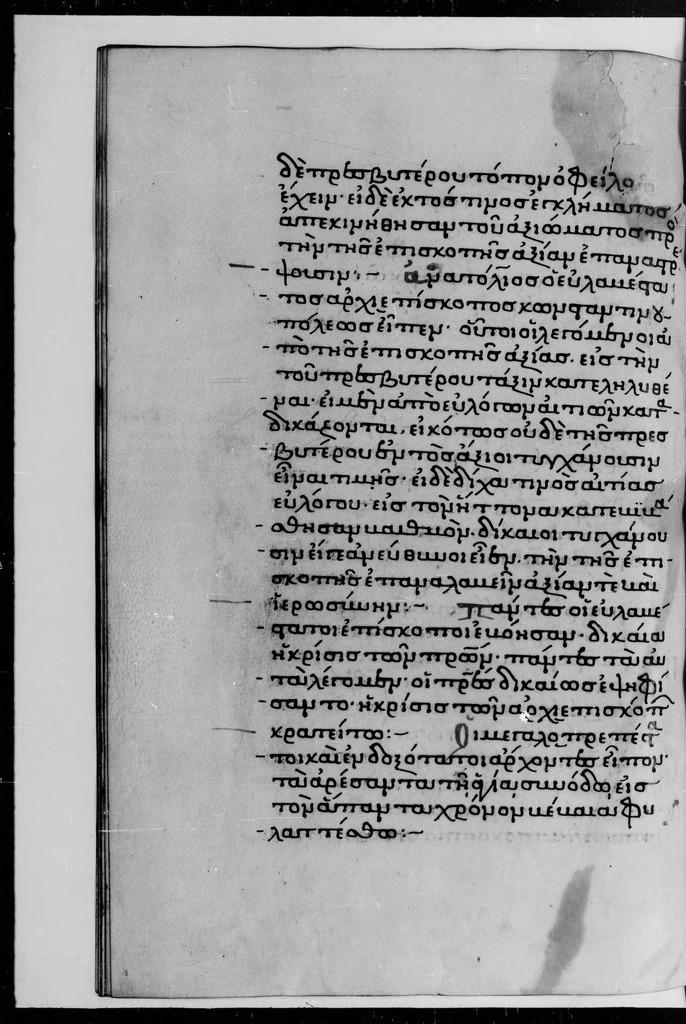 δὲ πρεσβυτέρου τόπον ὀφείλο
ἔχειν· εἰ δὲ ἐκτός τινος ἐγκλήματος
ἀπεκινήθησαν τοῦ ἀξιώματος πρὸς
τὴν τῆς ἐπισκοπῆς ἀξίαν ἐπαναστρέ
ψουσιν:~ Ἀνατόλιος ὁ εὐλαβέστα
τος ἀρχιεπίσκοπος κωνσταντινου
πόλεως εἶπεν· οὗτοι οἱ λεγόμενοι ἀ
πὸ τῆς ἐπισκοπῆς ἀξίας. εἰς τὴν
τοῦ πρεσβυτέρου τάξιν κατεληλυθέ
ναι· εἰ μὲν ἀπὸ εὐλόγων αἰτιῶν κατα
δικάζονται, εἰκότως οὐδὲ τῆς πρεσ
βυτέρου ἐντὸς ἄξιοι τυγχάνουσιν
εἶναι τιμῆς· εἰ δὲ δίχα τινὸς αἰτίας
εὐλόγου· εἰς τὸν ἥττονα κατεβιβά
σθησαν βαθμὸν. δίκαιοι τυγχάνου
σιν εἴγε ἀνεύθυνοι εἶεν. τὴν τῆς ἐπι
σκοπῆς ἐπαναλαβεῖν ἀξίαν τὲ καὶ
ἱερωσύνην:~ Πάντες οἱ εὐλαβέ
στατοι ἐπίσκοποι ἐβόησαν· δικαία
ἡ κρίσις τῶν πατέρων· πάντες ταῦτα
λέγομεν· οἱ πατέρες δικαίως ἐψηφί
σαντο· ἡ κρίσις τῶν ἀρχιεπισκόπων
κρατείτω:~ Οἱ μεγαλοπρεπέστα
τοι καὶ ἐνδοξότατοι ἄρχοντες εἶπον·
τὰ ἀρέσαντα τῇ ἁγίᾳ συνόδῳ εἰς
τὸν ἅπαντα χρόνον βέβαια φυ
λαττέσθω:~